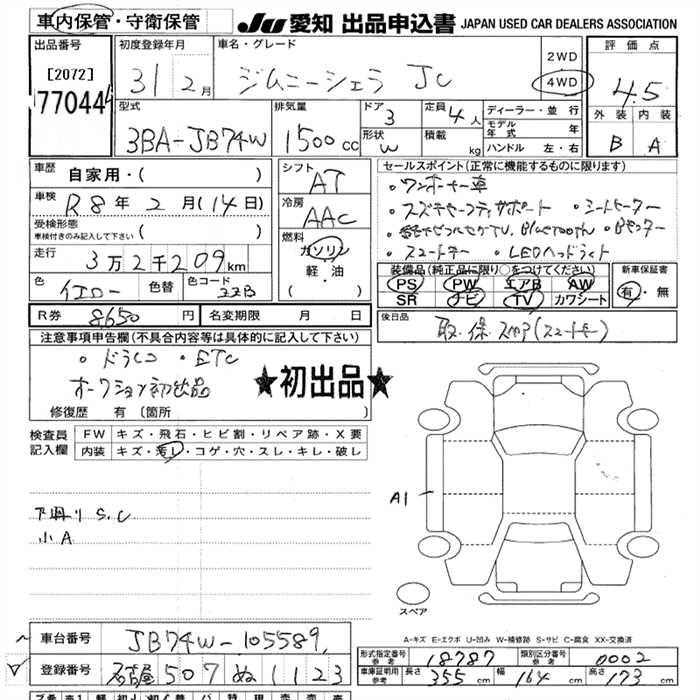 車内保管・守衛保管
JU 愛知 出品申込書 JAPAN USED CAR DEALERS ASSOCIATION
出品番号
[2072]
77044
初度登録年月
31 2月
車名・グレード
ジムニーシエラ JC
2WD
4WD
評価点
4.5
外装 内装
B A
型式
3BA-JB74W
排気量
1500cc
ドア 3
形状 W
定員 4人
積載 kg
ディーラー・並行
モデル年式 年
ハンドル 左・右
車歴 自家用・( )
車検 R8年2月(14日)
受検形態
車検付きのみ記入して下さい ( )
走行 3万2千209km
色 イエロー 色替 色コード
シフト AT
冷房 AAC
燃料
ガソリン
軽・油
( )
セールスポイント(正常に機能するものに限ります)
・ワンオーナー車
・スズキセーフティサポート ・シートヒーター
Bluetooth ・Bモニター
・スマートキー ・LEDヘッドライト
装備品(純正品に限り○をつけてください)
PS PW エアB AW
SR ナビ TV カワシート
新車保証書
有・無
R券 8650円 名変期限 月 日
後日品 取・保・スペア(スマートキー)
注意事項申告欄(不具合内容等は具体的に記入して下さい)
・ドラレコ ・ETC
オークション初出品
★初出品★
修復歴 有 〔箇所 〕
検査員記入欄
FW キズ・飛石・ヒビ割・リペア跡・X要
内装 キズ・汚レ・コゲ・穴・スレ・キレ・破レ
下廻り S.C
小A
A1
スペア
A-キズ E-エクボ U-凹み W-補修跡 S-サビ C-腐食 XX-交換済
車台番号 JB74W-105589
登録番号 名古屋 507 ぬ 1123
形式指定番号 参考 18787 類別区分番号 参考 0002
車庫証明用 参考 長さ 355cm 幅 164cm 高さ 173cm